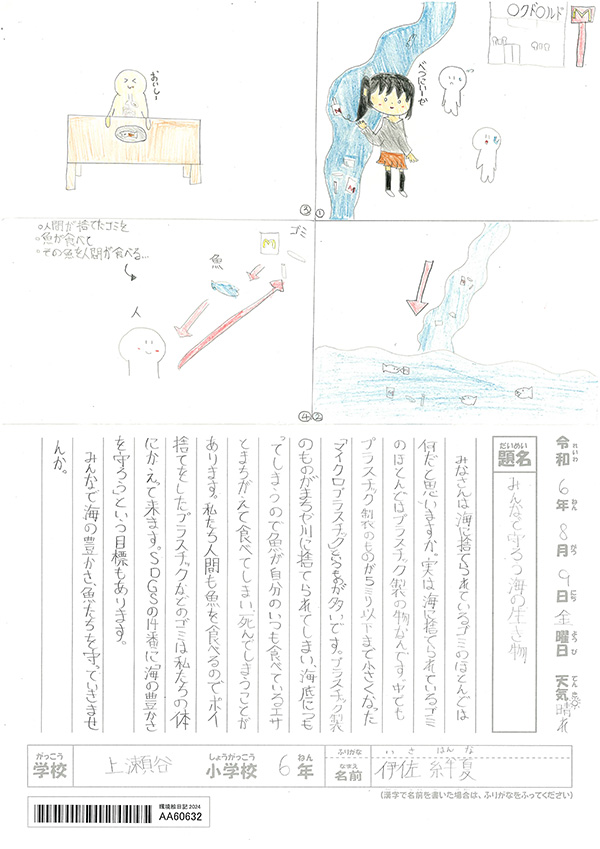 〇クド〇ルド
M
べつにいーぜ
①
②
おいしー
③
ゴミ
M
魚
人
○人間が捨てたゴミを
○魚が食べて
○その魚を人間が食べる…
④
令和6年8月9日金曜日 天気晴れ
れいわ ねん がつ にち ようび てんき
だいめい
題名
みんなで守ろう海の生き物
みなさんは海に捨てられているゴミのほとんどは
何だと思いますか。実は、海に捨てられているゴミ
のほとんどはプラスチック製の物なんです。中でも
プラスチック製のものが5ミリ以下まで小さくなった
「マイクロプラスチック」というものが多いです。プラスチック製
のものがまちや川に捨てられてしまい、海底につも
ってしまうので魚が自分のいつも食べているエサ
とまちがえて食べてしまい、死んでしまうことが
あります。私たち人間も魚を食べるのでポイ
捨てをしたプラスチックなどのゴミは私たちの体
にかえって来ます。SDGSの14番に「海の豊かさ
を守ろう」という目標もあります。
みんなで海の豊かさ、魚たちを守っていきませ
んか。
がっこう しょうがっこう ねん ふりがな いさ はんな
学校 上瀬谷 小学校 6年 なまえ 名前 伊佐 絆夏
(漢字で名前を書いた場合は、ふりがなをふってください)
環境絵日記2024
AA60632